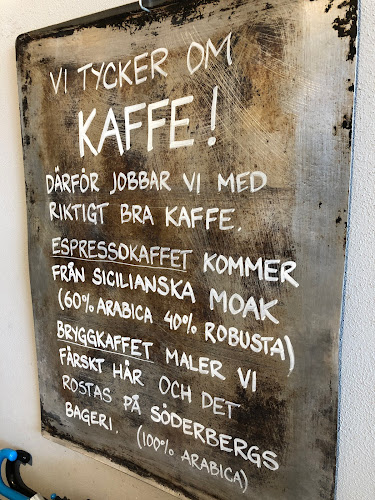 VI TYCKER OM
KAFFE!
DÄRFÖR JOBBAR VI MED
RIKTIGT BRA KAFFE.
ESPRESSOKAFFET KOMMER
FRÅN SICILIANSKA MOAK
(60% ARABICA 40% ROBUSTA)
BRYGGKAFFET MALER VI
FÄRSKT HÄR OCH DET
ROSTAS PÅ SÖDERBERGS
BAGERI. (100% ARABICA)